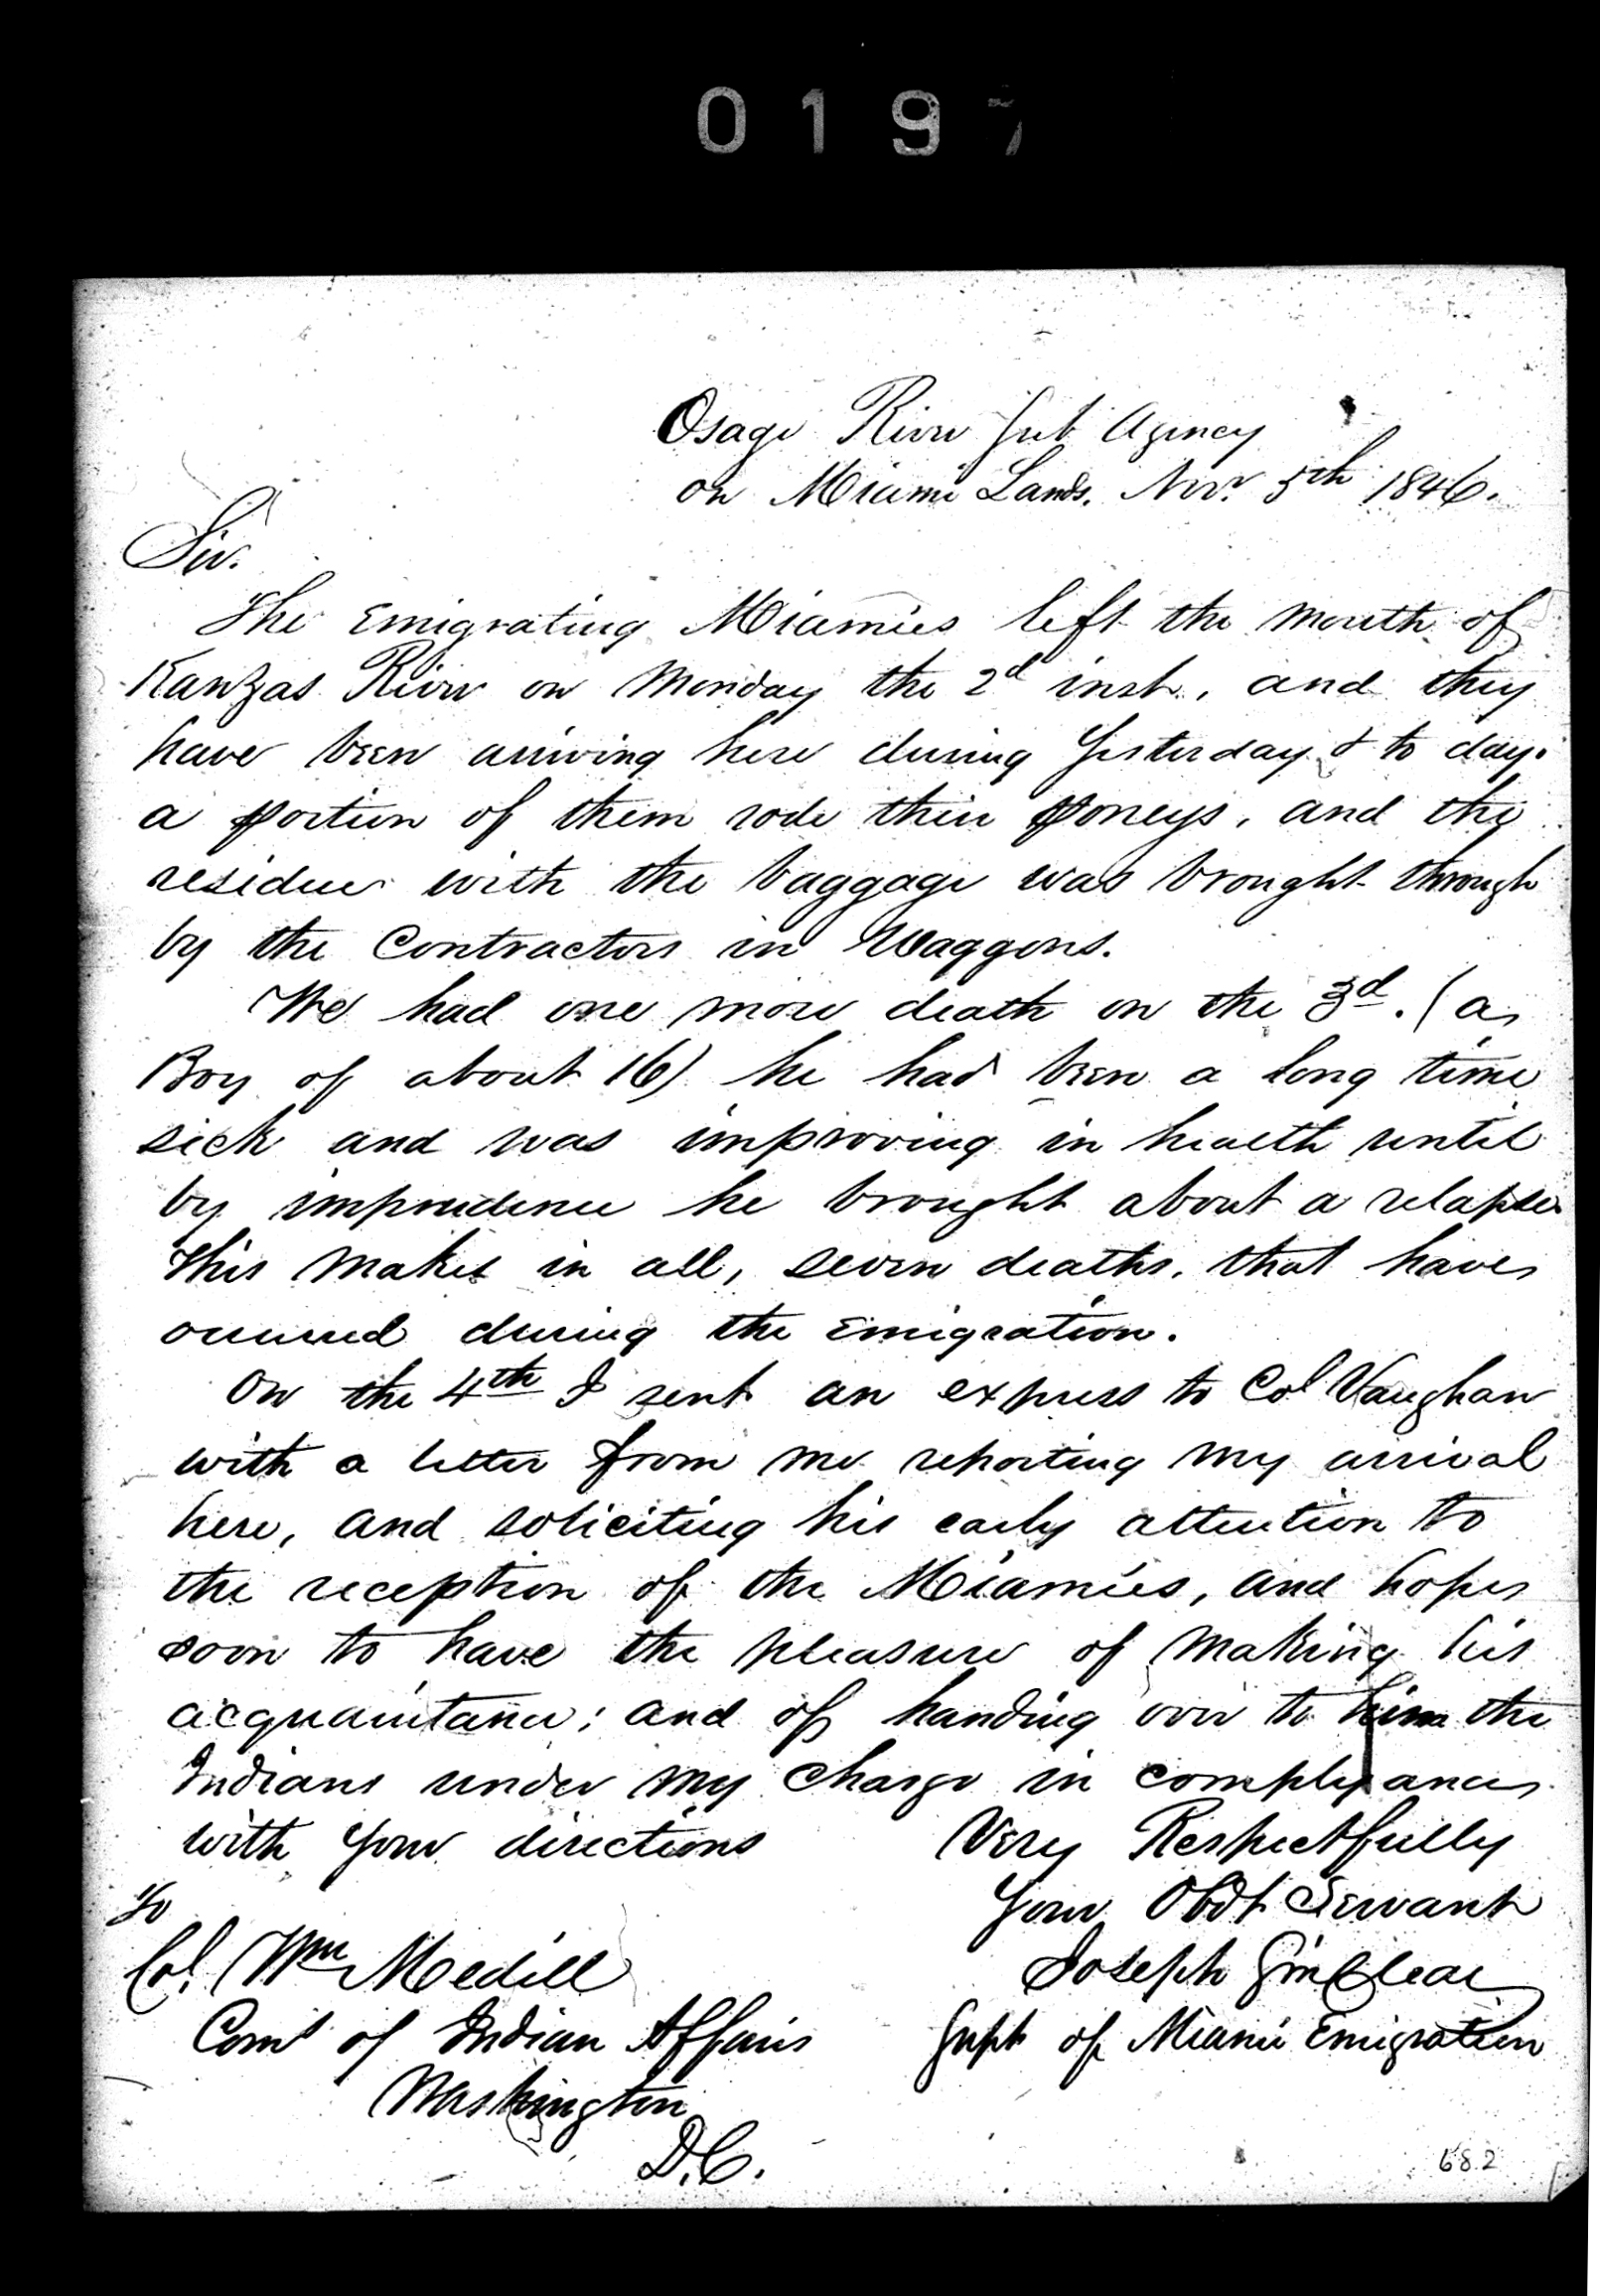 0197
Osage River Sub Agency
on Miami Lands. Novr. 5th 1846.
Sir.
The Emigrating Miamies left the mouth of
Kanzas River on Monday the 2d inst., and they
have been arriving here during Yesterday & to day.
a portion of them rode their poneys, and the
residue with the baggage was brought through
by the Contractors in Waggons.
We had one more death on the 3d. (a
Boy of about 16) he had been a long time
sick and was improving in health until
by imprudence he brought about a relapse
this makes in all, seven deaths, that have
occurred during the Emigration.
On the 4th I sent an express to Col Vaughan
with a letter from me reporting my arrival
here, and soliciting his early attention to
the reception of the Miamies, and hopes
soon to have the pleasure of making his
acquaintance; and of handing over to him the
Indians under my charge in complyance
with your directions
Very Respectfully
Your Obdt Servant
Joseph Sinclear
Supt of Miami Emigration
To
Col. Wm Medill
Comr of Indian Affairs
Washington
D.C.
682